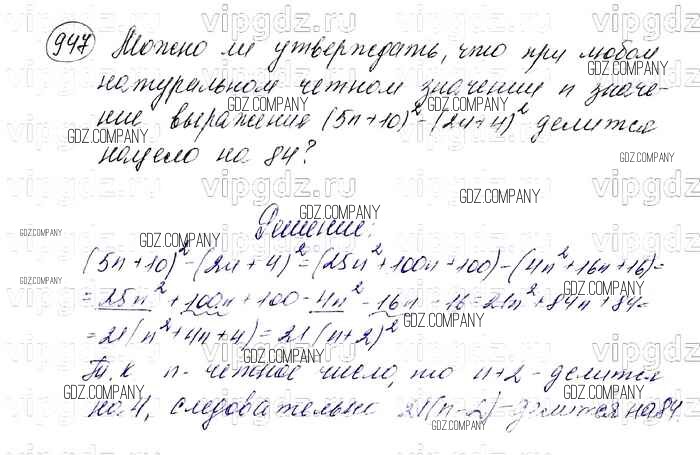 947 Можно ли утверждать, что при любом
натуральном четном значении n значе-
ние выражения (5n+10)² - (2n+4)² делится
нацело на 84?
Решение:
(5n+10)² - (2n+4)² = (25n² + 100n + 100) - (4n² + 16n + 16) =
= 25n² + 100n + 100 - 4n² - 16n - 16 = 21n² + 84n + 84 =
= 21(n² + 4n + 4) = 21(n+2)²
Т.к n - четное число, то n+2 - делится
на 4, следовательно 21(n-2) - делится на 84.
vipgdz.ru
GDZ.COMPANY